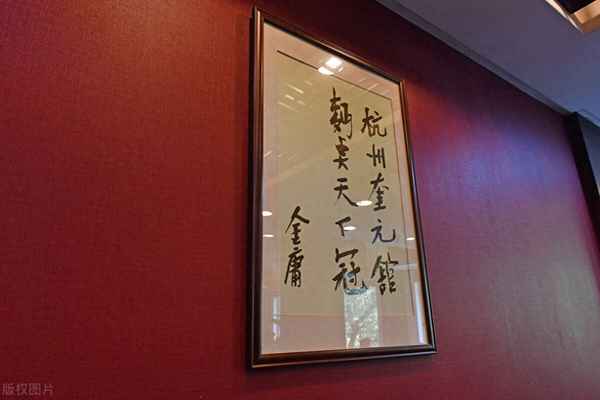 杭州奎元館
麪奌天下冠
金庸
版权图片